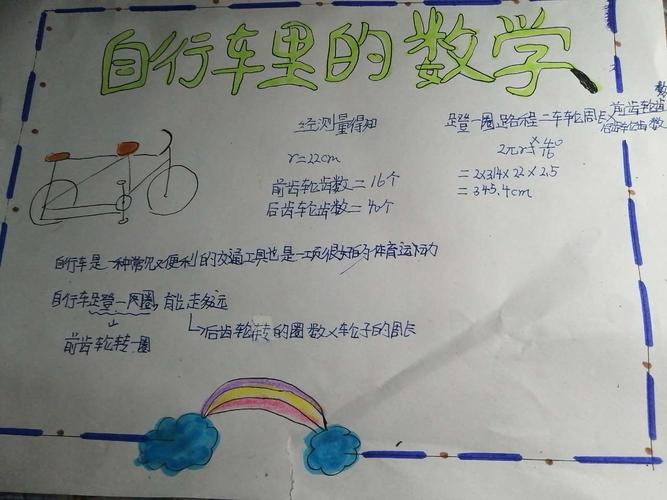 自行车里的数学
经测量得知
r=22cm
前齿轮齿数=16个
后齿轮齿数=40个
蹬一圈路程=车轮周长×前齿轮齿数/后齿轮齿数
2πr×40/16
=2×3.14×22×2.5
=345.4cm
自行车是一种常见又便利的交通工具也是一项很好的体育运动
自行车蹬一圈,能走多远
前齿轮转一圈
后齿轮转的圈数×车轮子的周长